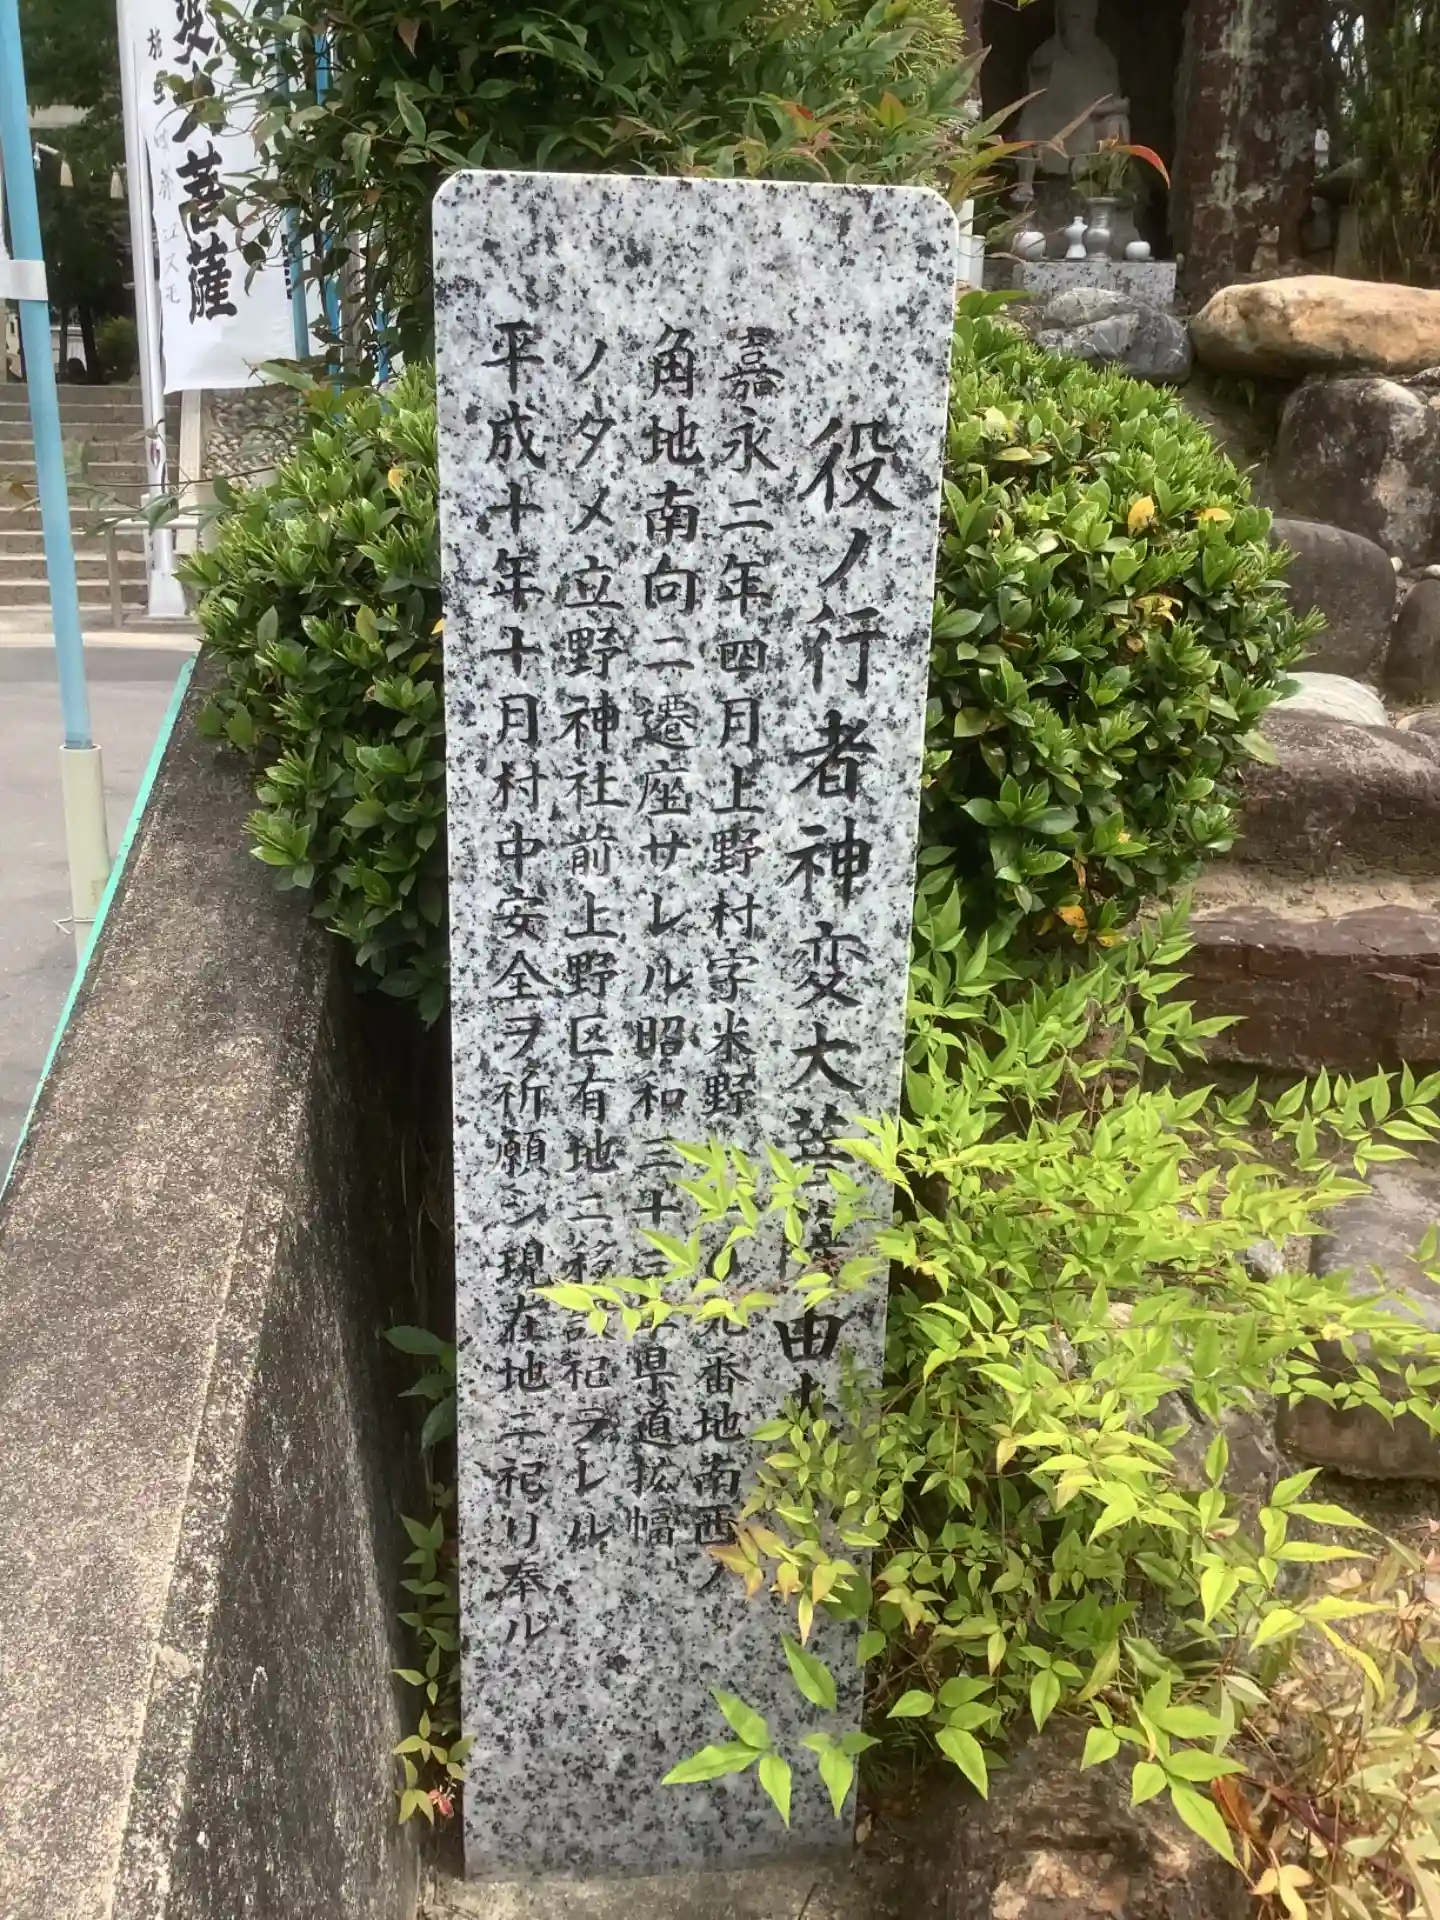 役ノ行者神変大菩薩由
嘉永二年四月上野村字米野番地南西ノ
角地南向ニ遷座サレル昭和三十三年県道拡幅
ノタメ立野神社前上野区有地ニ移設祀ラレル
平成十年十月村中安全ヲ祈願シ現在地ニ祀リ奉ル
変大菩薩